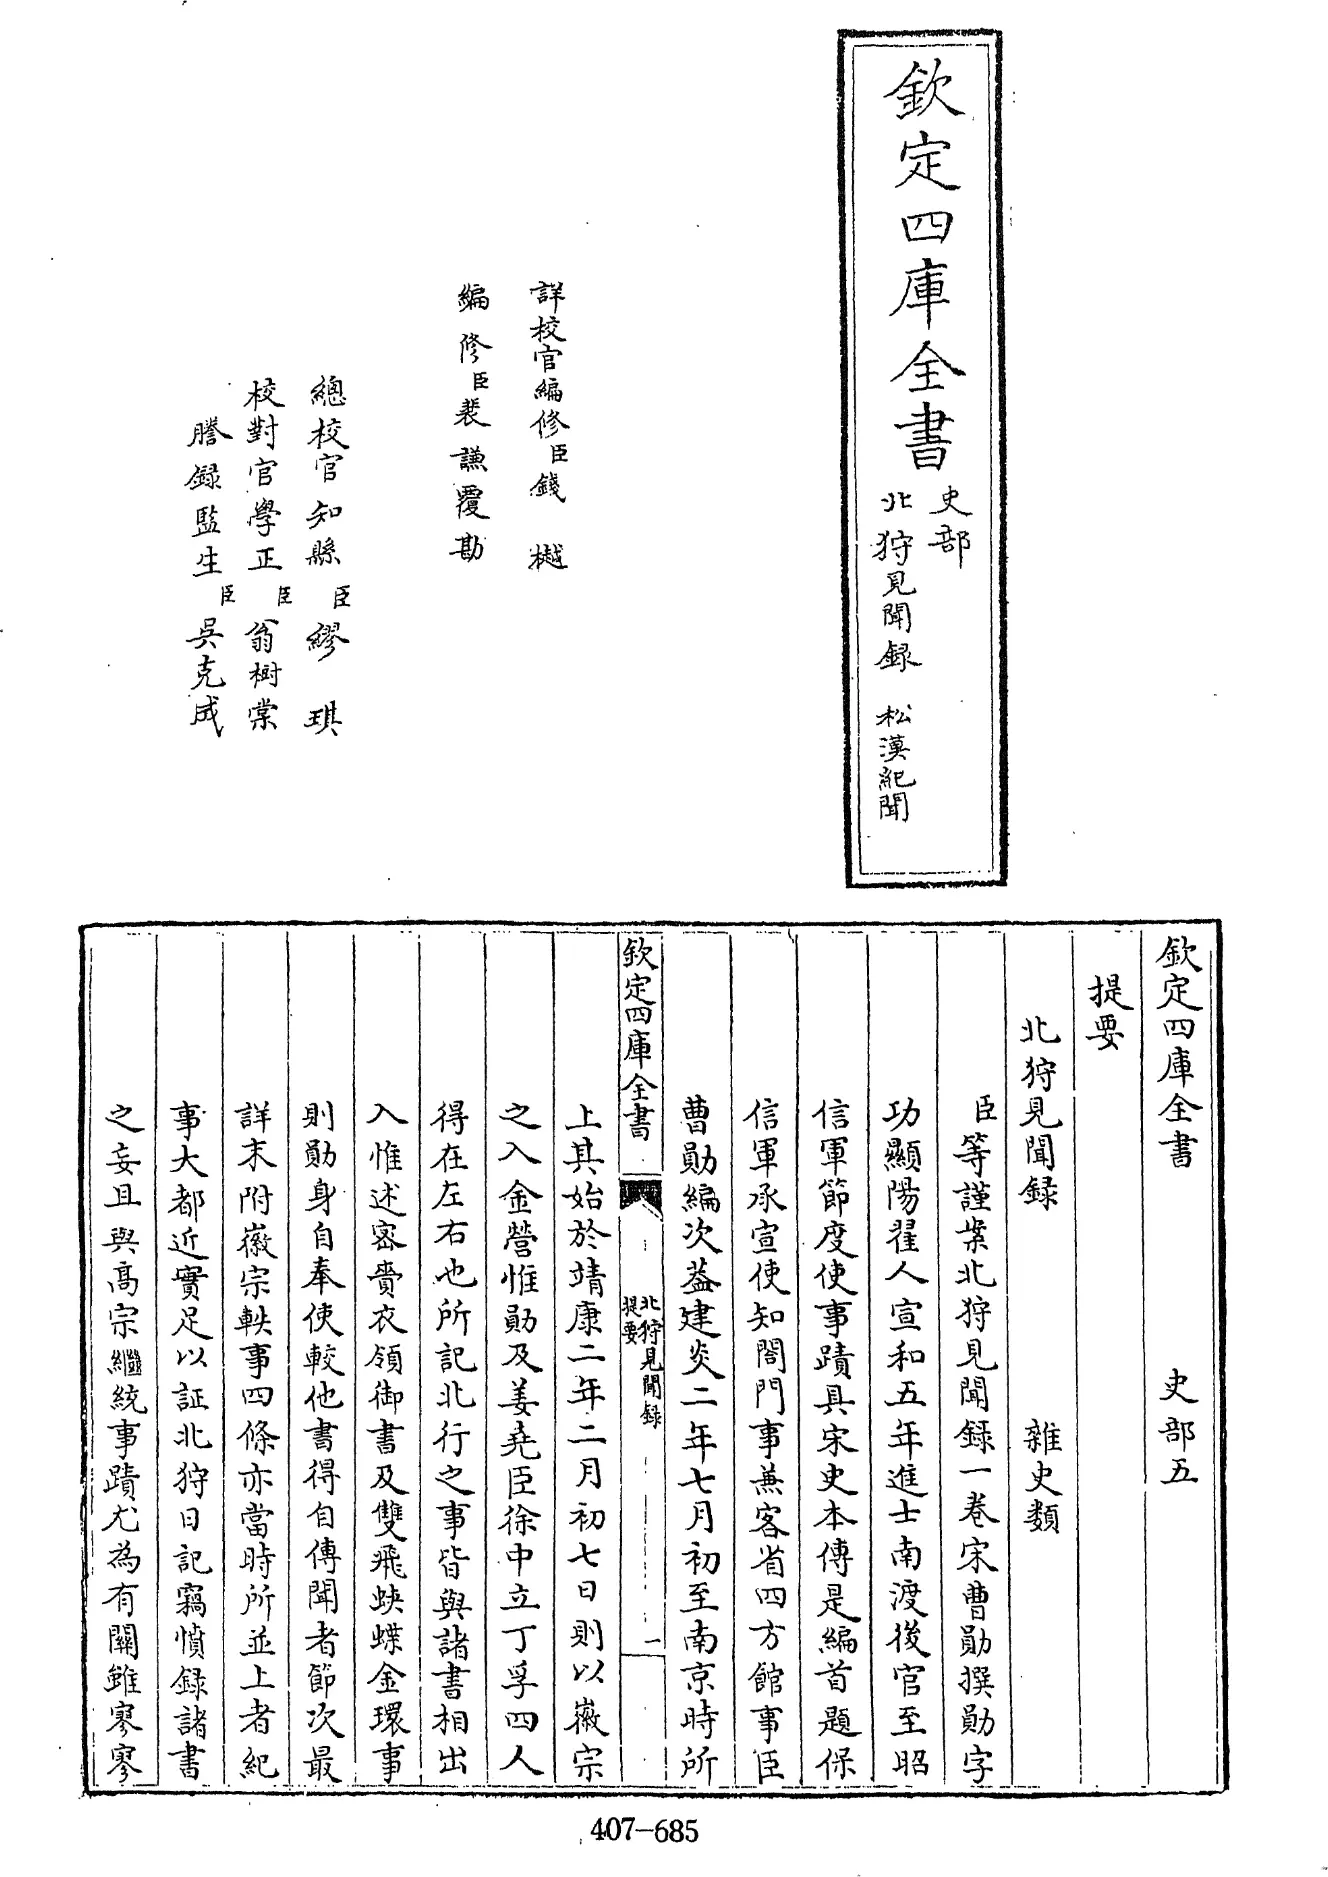 欽定四庫全書
史部
北狩見聞録 松漠紀聞
詳校官編修臣錢樾
編修臣裴謙覆勘
總校官知縣臣繆琪
校對官學正臣翁樹棠
謄録監生臣吳克成
欽定四庫全書 史部五
提要
北狩見聞録 雜史類
臣等謹案北狩見聞録一卷宋曹勛撰勛字
功顯陽翟人宣和五年進士南渡後官至昭
信軍節度使事蹟具宋史本傳是編首題保
信軍承宣使知閤門事兼客省四方館事臣
曹勛編次葢建炎二年七月初至南京時所
欽定四庫全書
北狩見聞録
提要
一
上其始於靖康二年二月初七日則以徽宗
之入金營惟勛及姜堯臣徐中立丁孚四人
得在左右也所記北行之事皆與諸書相出
入惟述密賫衣領御書及雙飛蛺蝶金環事
則勛身自奉使較他書得自傳聞者節次最
詳末附徽宗軼事四條亦當時所並上者紀
事大都近實足以証北狩日記竊憤録諸書
之妄且與髙宗繼統事蹟尤為有闗雖寥寥
407-685